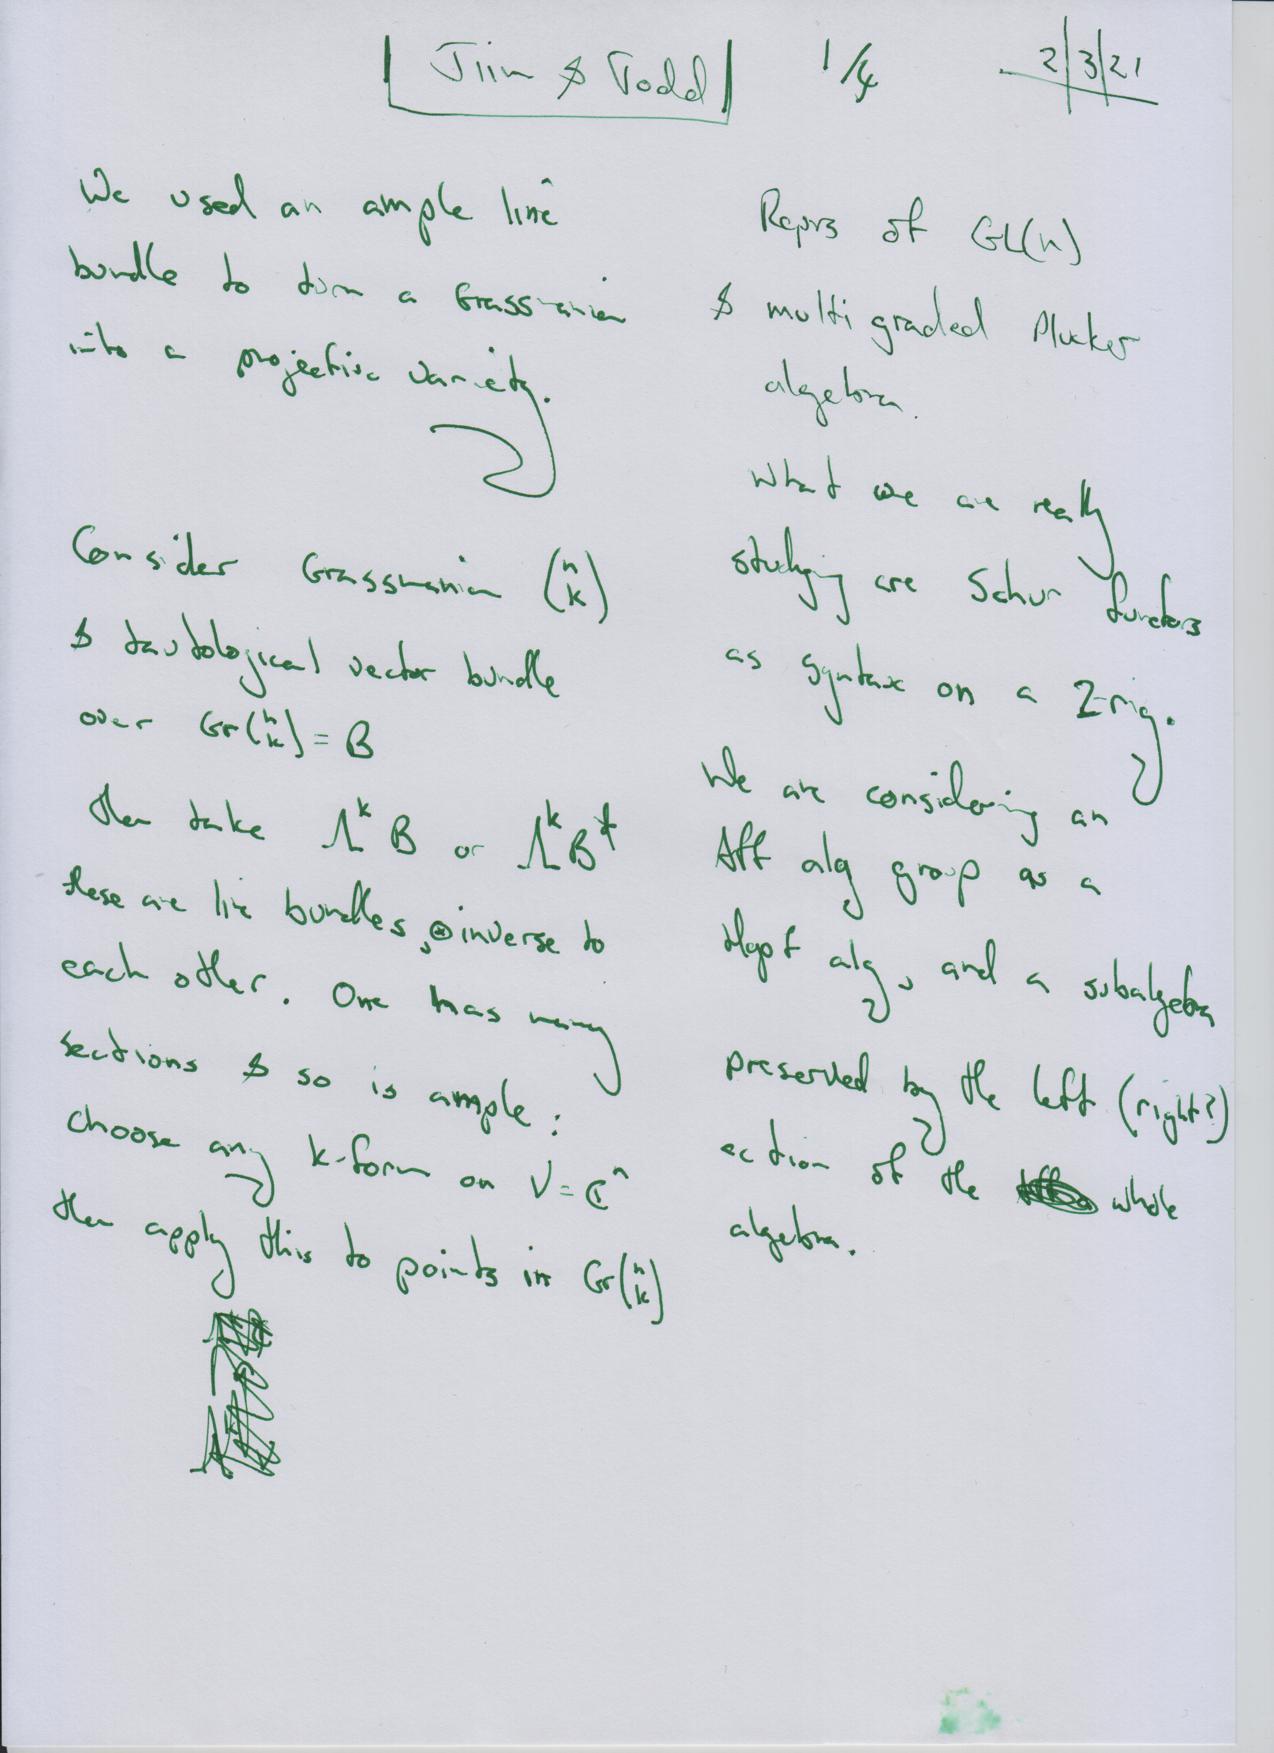 Jiim & Todd
1/4
2/3/21
We used an ample line
bundle to turn a Grassmanian
into a projective variety.
Consider Grassmanian (n k)
& tautological vector bundle
over Gr(n k) = B
then take Λ^k B or Λ^k B*
these are line bundles, ⊗ inverse to
each other. One has many
sections & so is ample:
choose any k-form on V = ℂ^n
then apply this to points in Gr(n k)
Reprs of GL(n)
& multi graded Plucker
algebra.
What we are really
studying are Schur functors
as syntax on a 2-rig.
We are considering an
Aff alg group as a
Hopf alg, and a subalgebra
preserved by the left (right?)
action of the whole
algebra.